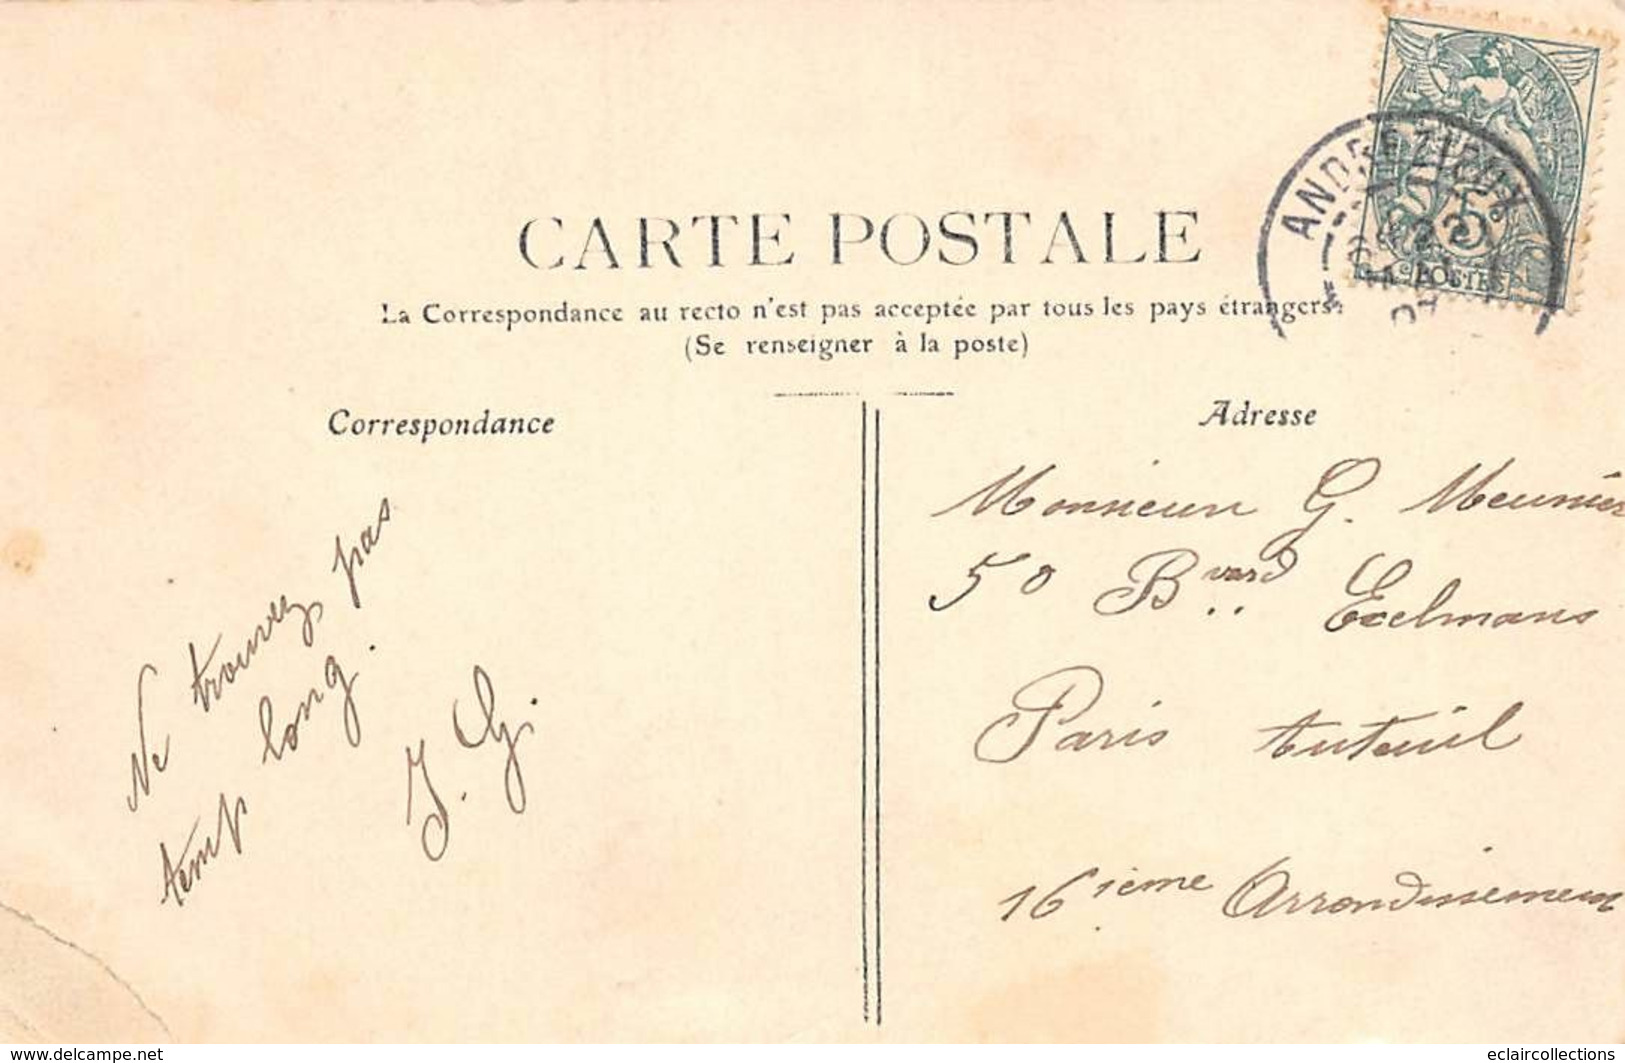 ANDREZIEUX
5c
POSTES
CARTE POSTALE
La Correspondance au recto n'est pas acceptée par tous les pays étrangers.
(Se renseigner à la poste)
Correspondance
Ne trouvez pas
temps long.
J. G.
Adresse
Monsieur G. Meunier
50 Bvard Exelmans
Paris Auteuil
16ième Arrondissement
www.delcampe.net
eclaircollections